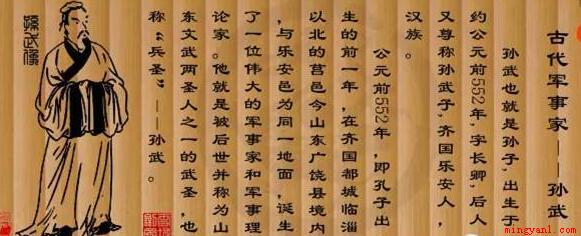 古代军事家——孙武
孙武也就是孙子,出生于
约公元前552年,字长卿,后人
又尊称孙武子,齐国乐安人,
汉族。
公元前552年,即孔子出
生的前一年,在齐国都城临淄
以北的莒邑今山东广饶县境内
,与乐安邑为同一地面,诞生
了一位伟大的军事家和军事理
论家。他就是被后世并称为山
东文武两圣人之一的武圣,也
称“兵圣”——孙武。
孫武像
mingyan1.com